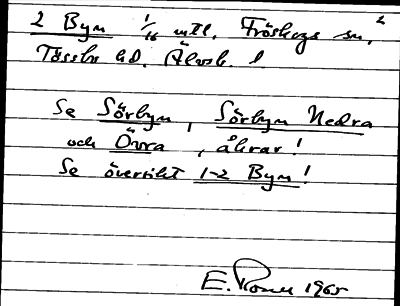 2
2 Byn 1/16 mtl. Fröskogs sn,
Tössbo hd. Älvsb. l
Se Sörbyn, Sörbyn Nedra
och Övra, åkrar!
Se översikt 1-2 Byn!
E. 1965